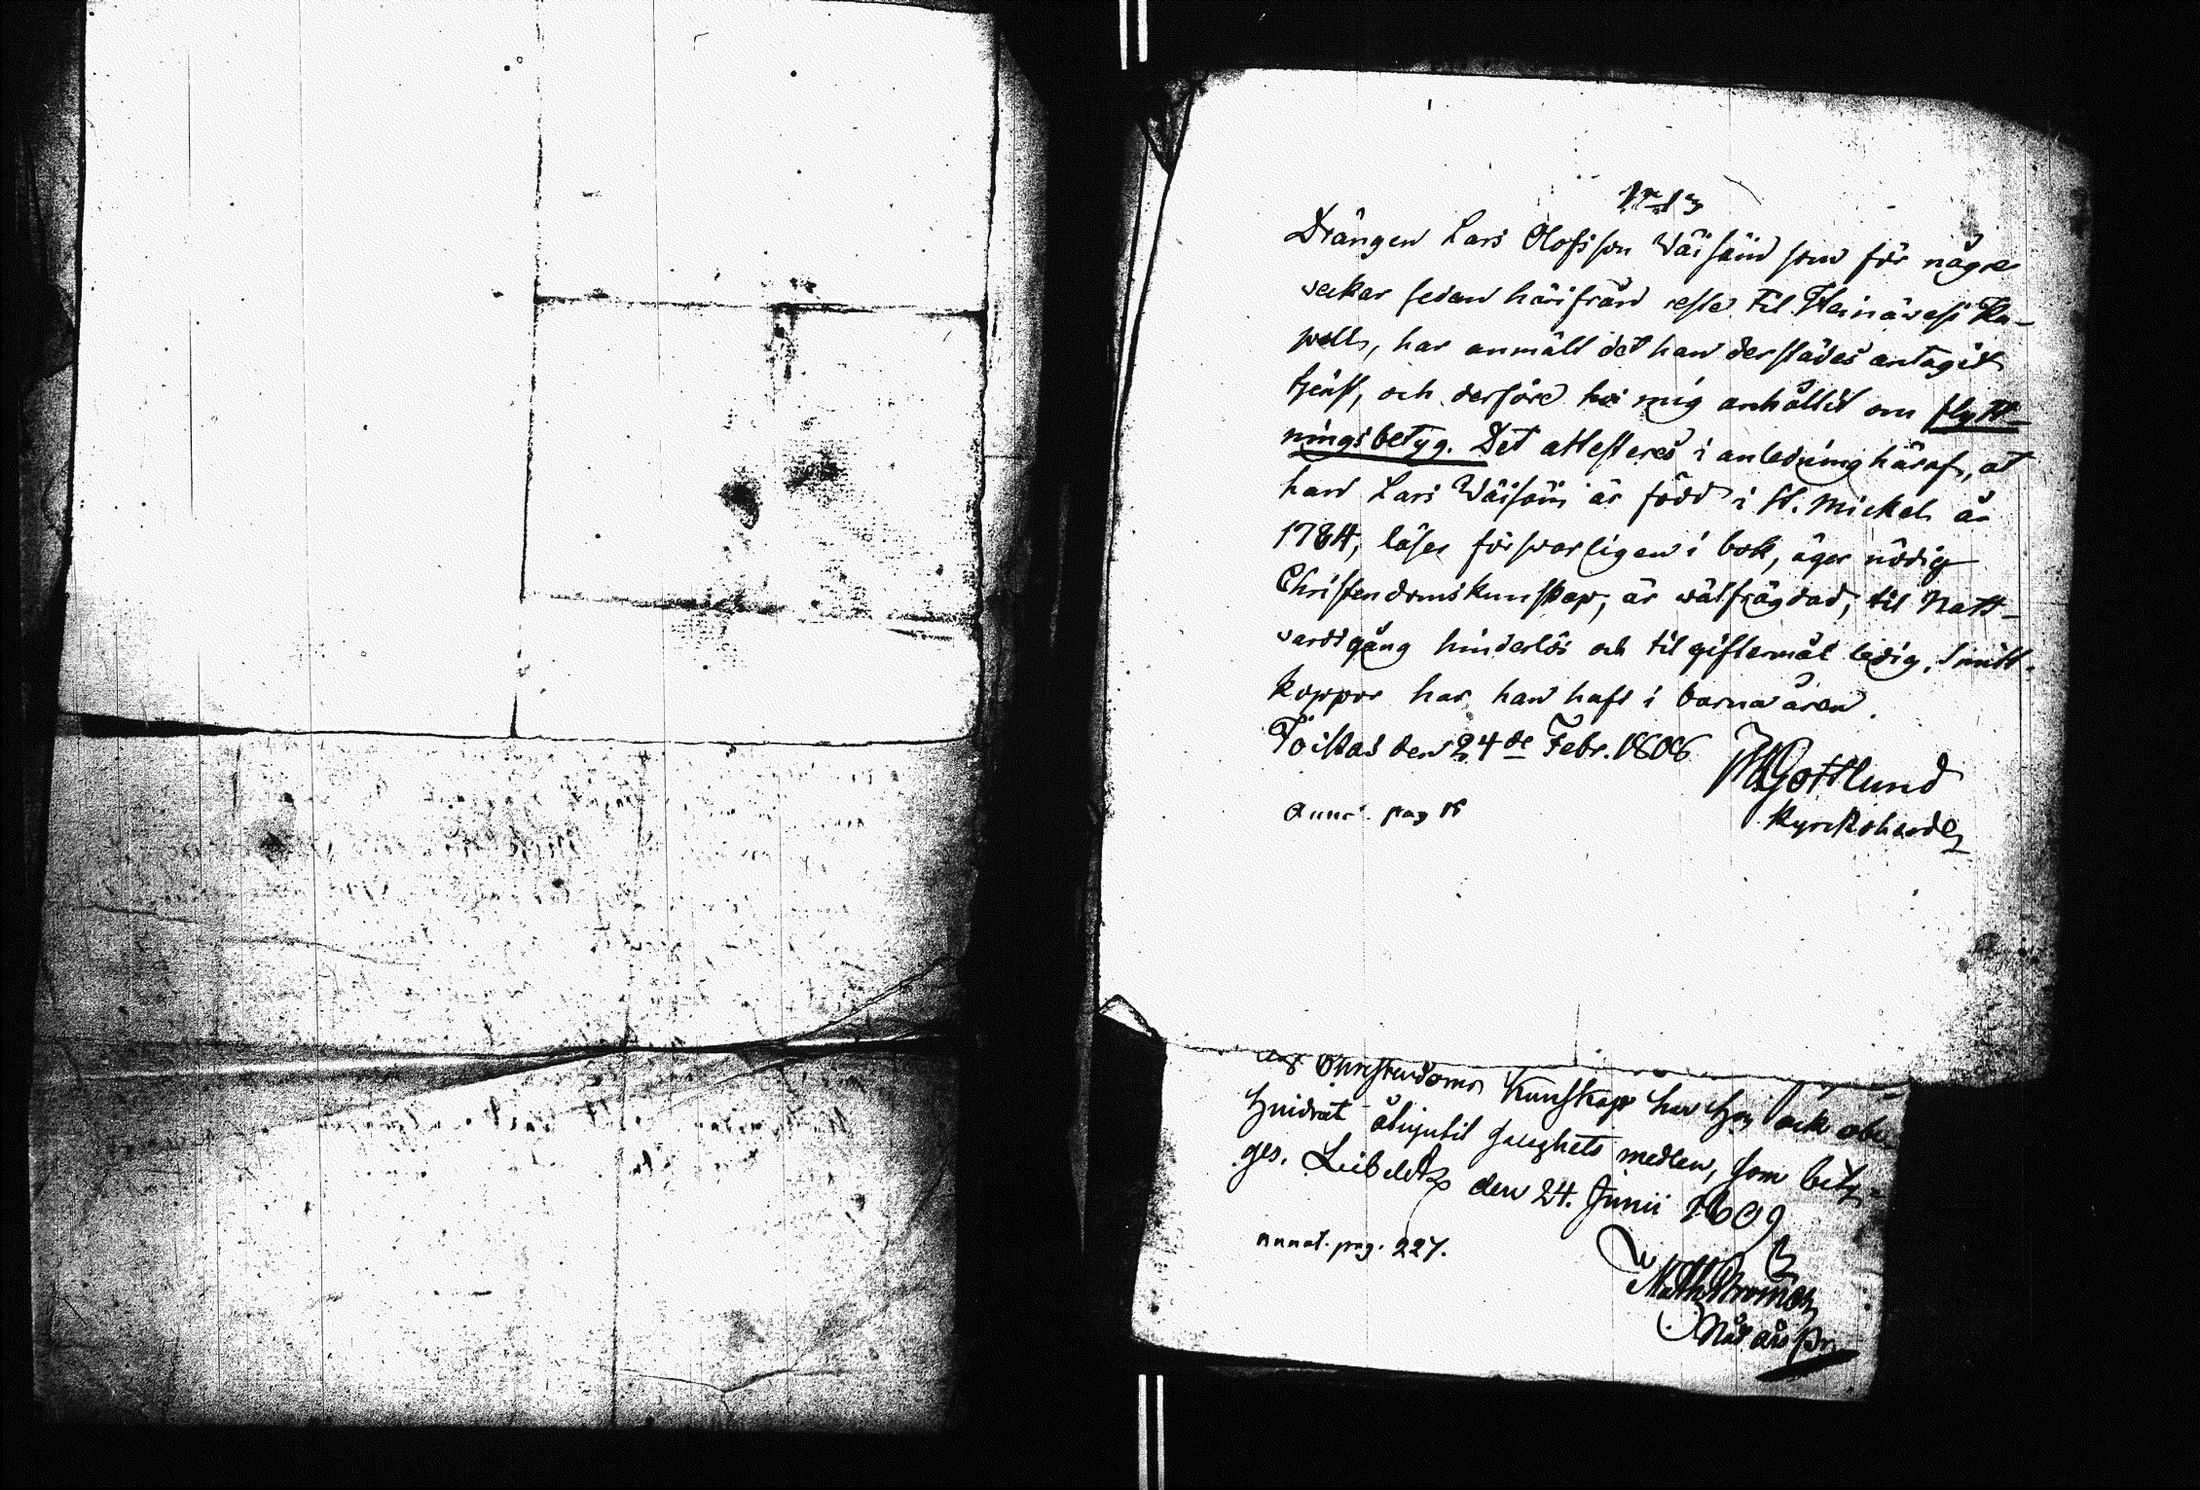 Drängen Lars Olofsson Wäisäin som för någre
veckor sedan härifrån reste til Heinävesi Ka-
pell, har anmält det han derstädes antagit
tjenst, och derföre hos mig anhållit om flytt-
ningsbetyg. Det attesteras i anledning häraf, at
han Lars Wäisäin är född i St. Mickel år
1784, läser försvarligen i bok, äger nödig
Christendomskunskap, är wälfrägdad, til Natt-
vardsgång hinderlös och til giftermål ledig. Smitt-
koppor har han haft i barnaåren.
den 24de Febr. 1806
Gottlund
Kyrckoherde
pag
Christendoms Kunskap har han ock
åtnjutit salighets medlen, som bety-
ges. den 24. Junii 1809
annot. pag. 227.